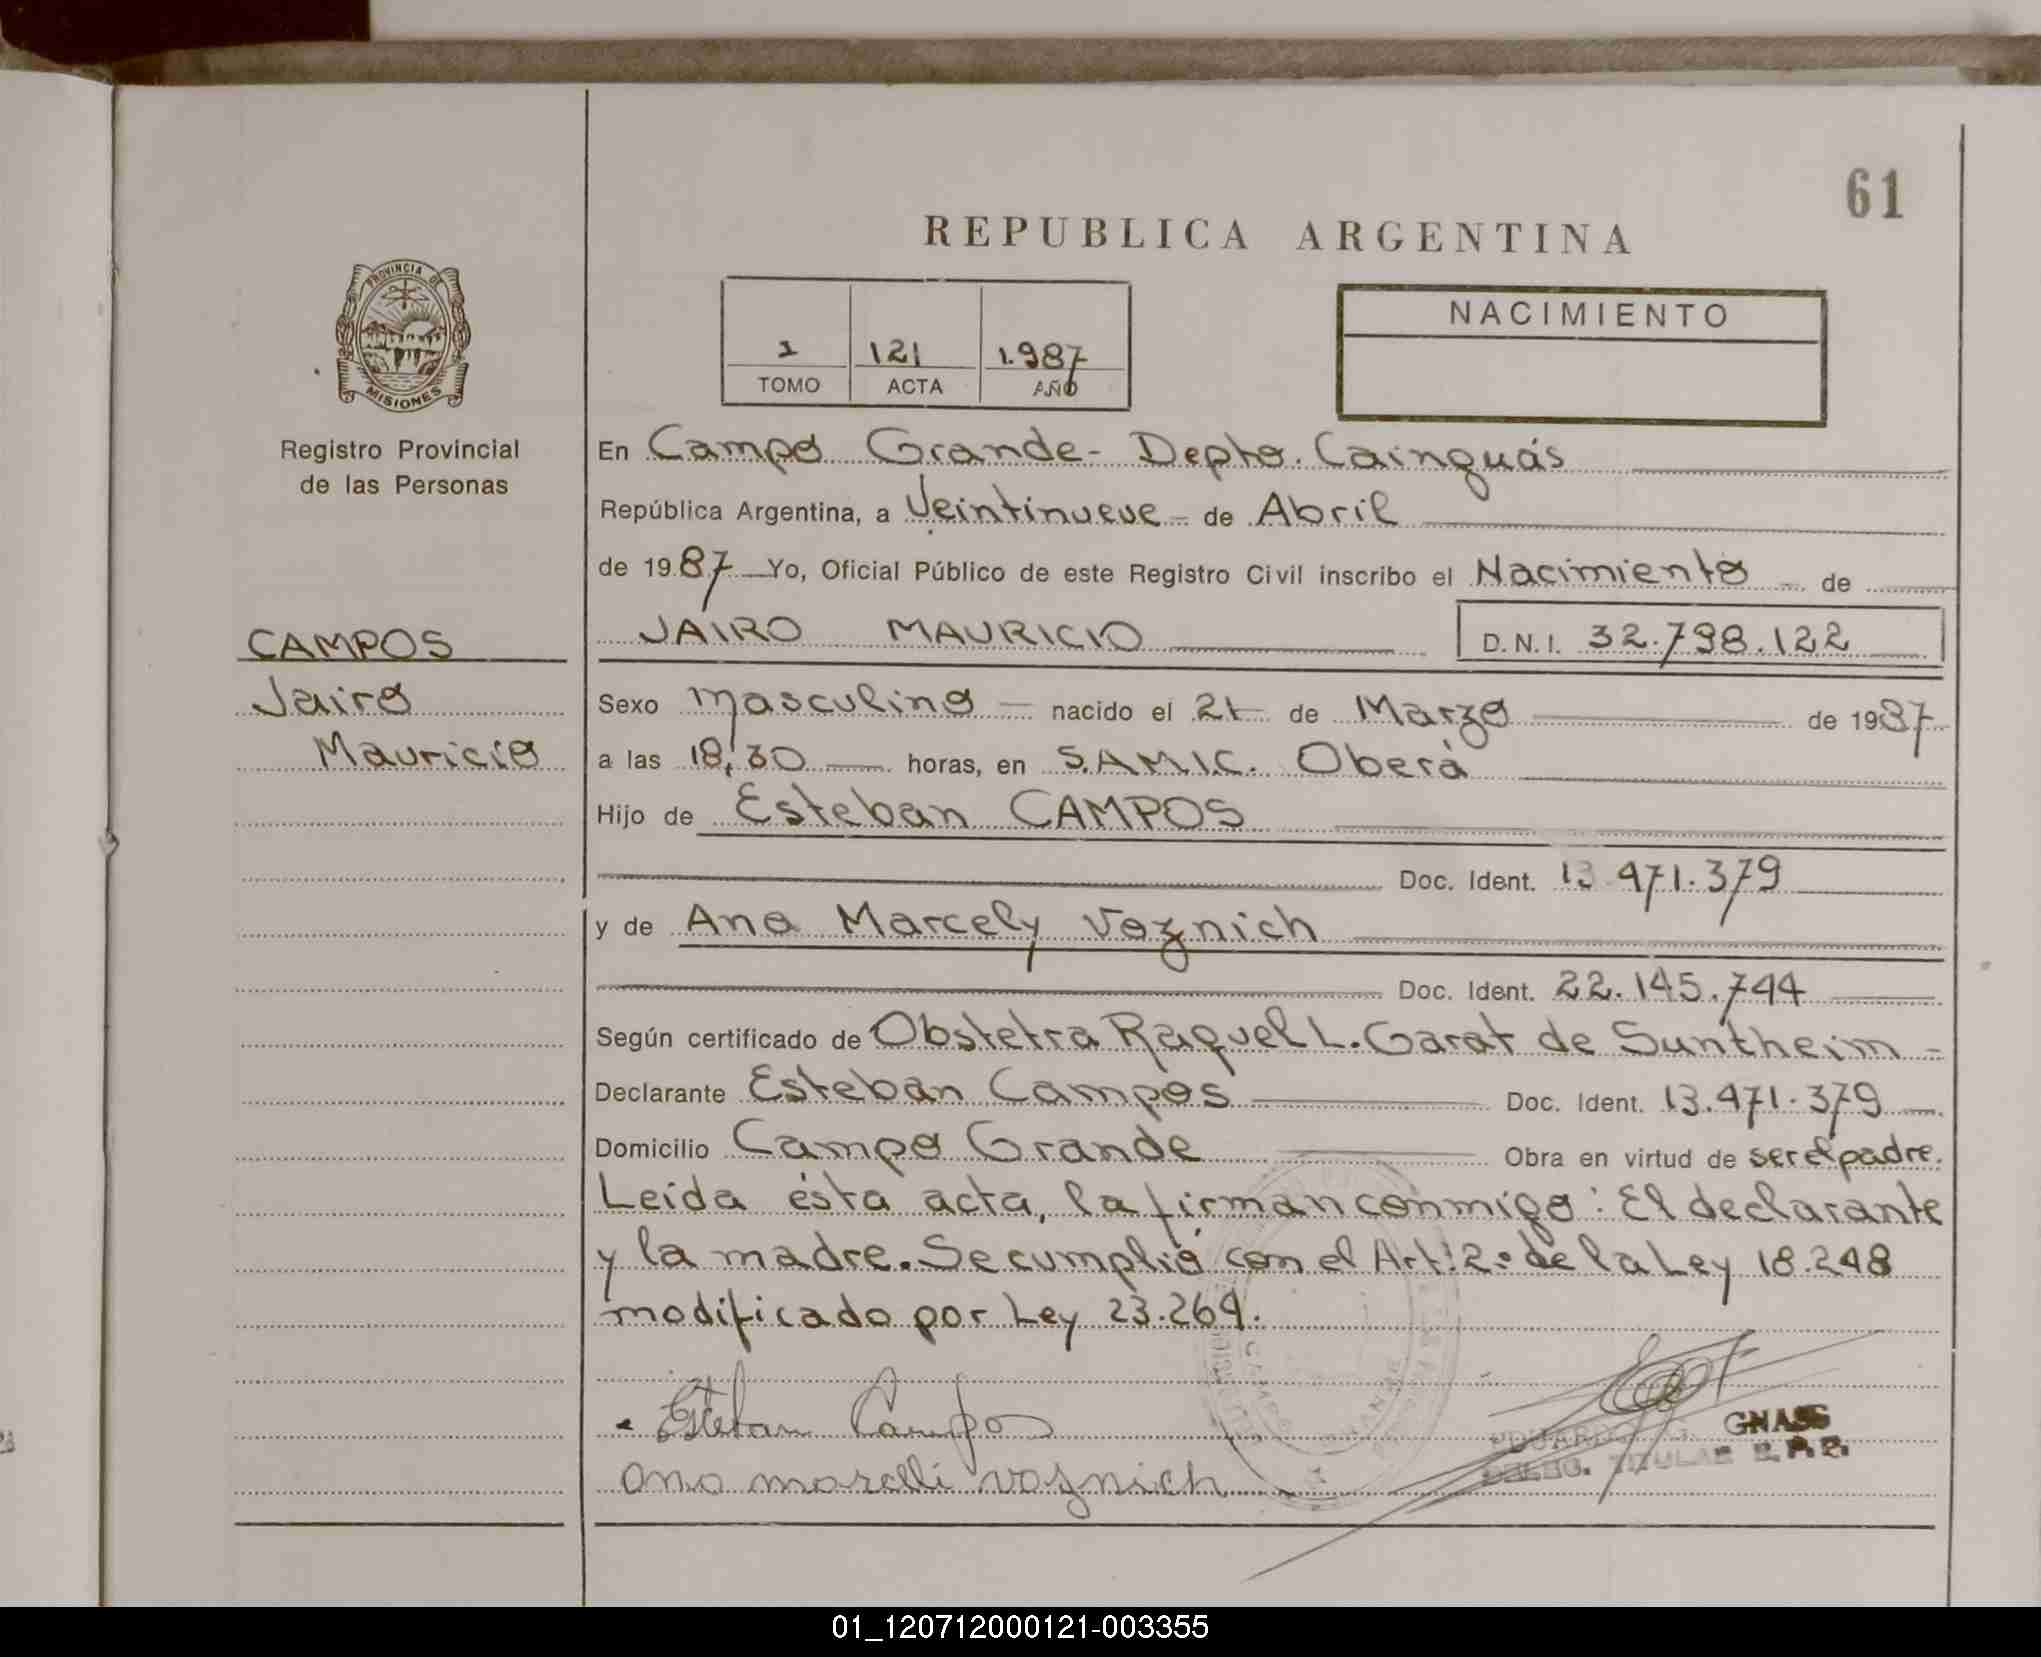 61
REPUBLICA ARGENTINA
PROVINCIA DE
MISIONES
Registro Provincial
de las Personas
NACIMIENTO
121 1.987
TOMO ACTA AÑO
En Campo Grande- Depto. Cainguás
República Argentina, a Veintinueve - de Abril
de 1987 Yo, Oficial Público de este Registro Civil inscribo el Nacimiento - de
JAIRO MAURICIO D.N.I. 32.798.122
CAMPOS
Jairo
Mauricio
Sexo Masculino - nacido el 21 de Marzo de 1987
a las 18,30 horas, en S.A.M.I.C. Oberá
Hijo de Esteban CAMPOS
Doc. Ident. 13.471.379
y de Ana Marcely Voznich
Doc. Ident. 22.145.744
Según certificado de Obstetra Raquel L. Garat de Suntheim -
Declarante Esteban Campos Doc. Ident. 13.471.379
Domicilio Campo Grande Obra en virtud de ser el padre.
Leída ésta acta, la firman conmigo: El declarante
y la madre. Se cumplió con el Art: 2º de la Ley 18.248
modificado por Ley 23.264.
Esteban Campos
Ana marelli voznich
EDUARDO GNASS
DELEG. TITULAR R.P.P.
CAMPO GRANDE
01_120712000121-003355